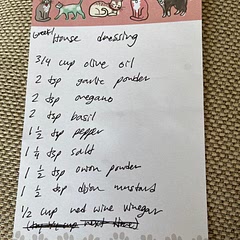 Greek House dressing
3/4 cup olive oil
2 tsp garlic powder
2 tsp oregano
2 tsp basil
1 1/2 tsp pepper
1 1/4 tsp salt
1 1/2 tsp onion powder
1 1/2 tsp dijon mustard
1/2 cup red wine vinegar